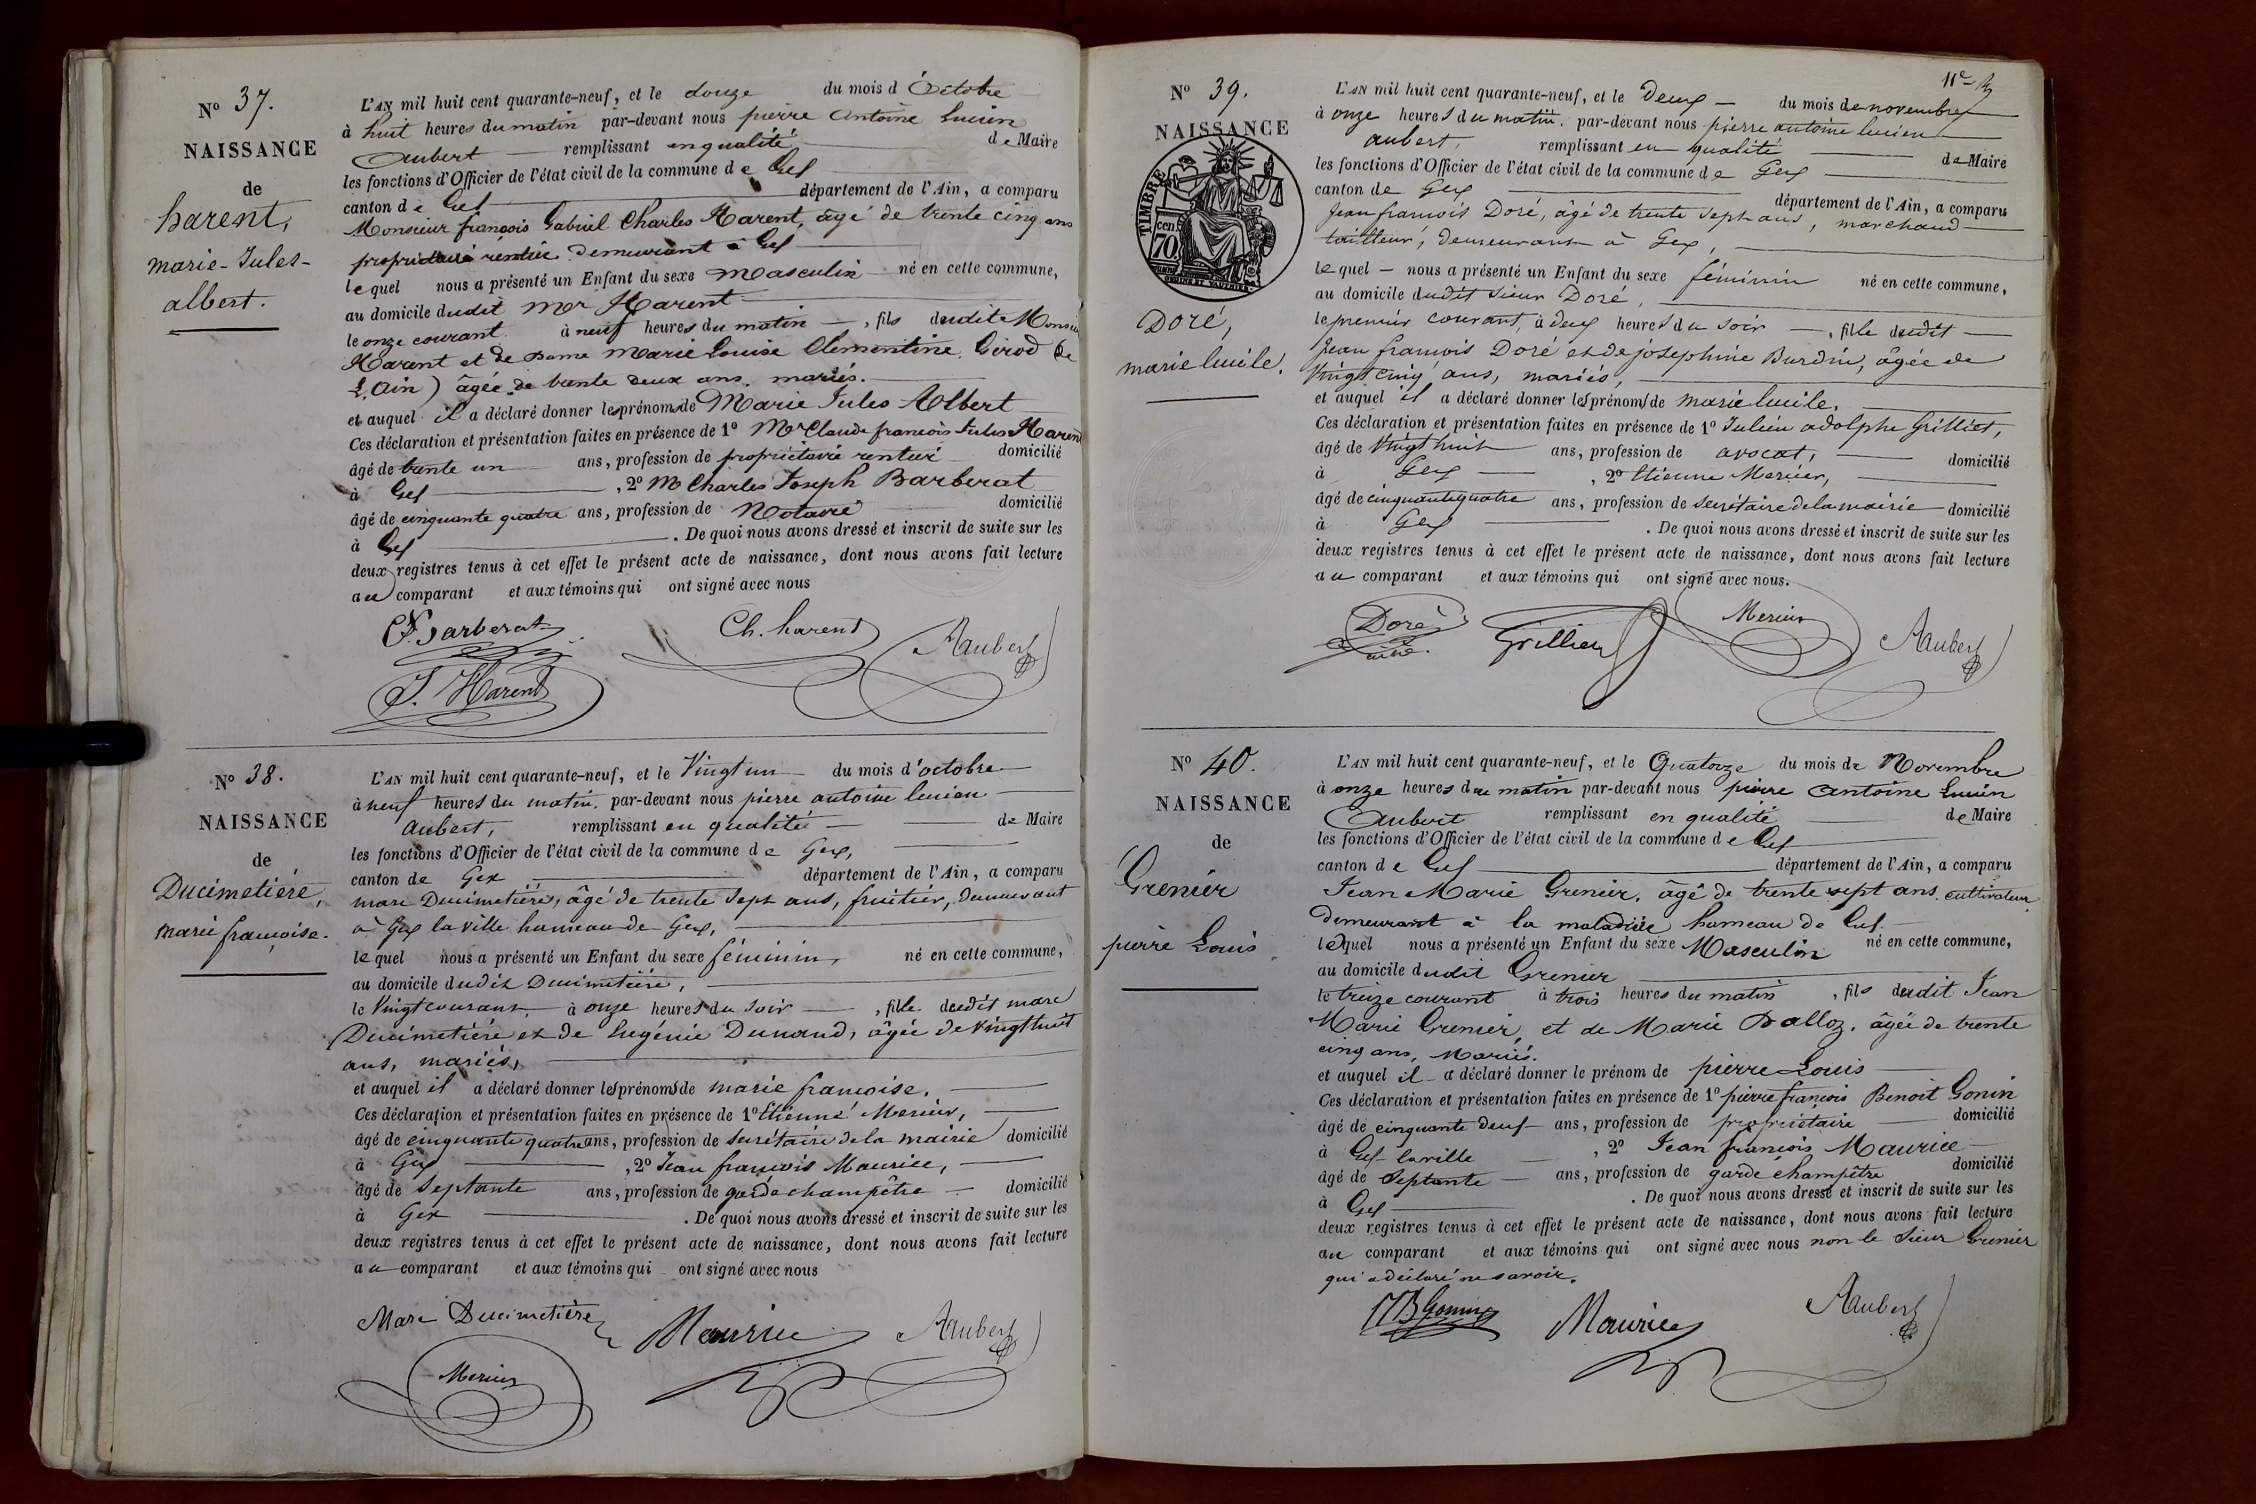 Nº 37.
NAISSANCE
de
harent,
marie-Jules-
albert.
L'AN mil huit cent quarante-neuf, et le douze du mois d'Octobre
à huit heures du matin par-devant nous pierre Antoine Lucien
Aubert remplissant en qualité de Maire
les fonctions d'Officier de l'état civil de la commune de Gex
canton de Gex département de l'Ain, a comparu
Monsieur françois Gabriel Charles Harent, âgé de trente cinq ans
propriétaire rentier demeurant à Gex
lequel nous a présenté un Enfant du sexe masculin né en cette commune,
au domicile dudit Mr Harent
le onze courant à neuf heures du matin, fils dudit Monsieur
Harent et de Dame Marie Louise Clementine Girod (de
L'Ain) âgée de trente deux ans. mariés.
et auquel il a déclaré donner les prénoms de Marie Jules Albert
Ces déclaration et présentation faites en présence de 1º Mr Claude francois Jules Harent
âgé de trente un ans, profession de propriétaire rentier domicilié
à Gex, 2º Mr Charles Joseph Barberat
âgé de cinquante quatre ans, profession de Notaire domicilié
à Gex. De quoi nous avons dressé et inscrit de suite sur les
deux registres tenus à cet effet le présent acte de naissance, dont nous avons fait lecture
au comparant et aux témoins qui ont signé avec nous
Barberat Ch. harent Aubert
J. Harent
Nº 38.
NAISSANCE
de
Ducimetière,
marie françoise.
L'AN mil huit cent quarante-neuf, et le Vingt un du mois d'octobre
à neuf heures du matin. par-devant nous pierre antoine lucien
aubert, remplissant en qualité de Maire
les fonctions d'Officier de l'état civil de la commune de Gex,
canton de Gex département de l'Ain, a comparu
marc Ducimetière, âgé de trente sept ans, fruitier, demeurant
à Gex la ville hameau de Gex,
lequel nous a présenté un Enfant du sexe féminin, né en cette commune,
au domicile dudit Ducimetière,
le Vingt courant à onze heures du soir, fille dudit marc
Ducimetière et de Eugénie Dunand, âgée de vingt huit
ans, mariés,
et auquel il a déclaré donner les prénoms de marie françoise.
Ces déclaration et présentation faites en présence de 1º Etienne Mercier,
âgé de cinquante quatre ans, profession de secrétaire de la mairie domicilié
à Gex, 2º Jean françois Maurice,
âgé de septante ans, profession de garde champêtre domicilié
à Gex. De quoi nous avons dressé et inscrit de suite sur les
deux registres tenus à cet effet le présent acte de naissance, dont nous avons fait lecture
au comparant et aux témoins qui ont signé avec nous
Marc Ducimetière Maurice Aubert
Mercier
11e
Nº 39.
NAISSANCE
TIMBRE
70 cen
Doré,
marie lucile.
L'AN mil huit cent quarante-neuf, et le Deux du mois de novembre
à onze heures du matin. par-devant nous pierre antoine lucien
aubert, remplissant en qualité de Maire
les fonctions d'Officier de l'état civil de la commune de Gex
canton de Gex département de l'Ain, a comparu
Jean francois Doré, âgé de trente sept ans, marchand
tailleur, demeurant à Gex,
lequel nous a présenté un Enfant du sexe féminin né en cette commune,
au domicile dudit sieur Doré,
le premier courant, à deux heures du soir, fille dudit
Jean francois Doré et de josephine Burdin, âgée de
Vingt cinq ans, mariés,
et auquel il a déclaré donner les prénoms de marie lucile.
Ces déclaration et présentation faites en présence de 1º Julien adolphe Grilliet,
âgé de Vingt huit ans, profession de avocat, domicilié
à Gex, 2º Etienne Mercier,
âgé de cinquante quatre ans, profession de secrétaire de la mairie domicilié
à Gex. De quoi nous avons dressé et inscrit de suite sur les
deux registres tenus à cet effet le présent acte de naissance, dont nous avons fait lecture
au comparant et aux témoins qui ont signé avec nous.
Doré Grilliet Mercier Aubert
Nº 40.
NAISSANCE
de
Grenier
pierre Louis
L'AN mil huit cent quarante-neuf, et le Quatorze du mois de Novembre
à onze heures du matin par-devant nous pierre Antoine Lucien
Aubert remplissant en qualité de Maire
les fonctions d'Officier de l'état civil de la commune de Gex
canton de Gex département de l'Ain, a comparu
Jean Marie Grenier, âgé de trente sept ans. cultivateur
demeurant à la maladière hameau de Gex.
lequel nous a présenté un Enfant du sexe Masculin né en cette commune,
au domicile dudit Grenier
le treize courant à trois heures du matin, fils dudit Jean
Marie Grenier, et de Marie Dalloz, âgée de trente
cinq ans, Mariés.
et auquel il a déclaré donner le prénom de pierre Louis
Ces déclaration et présentation faites en présence de 1º pierre francois Benoit Gonin
âgé de cinquante deux ans, profession de propriétaire domicilié
à Gex la ville, 2º Jean françois Maurice
âgé de Septante ans, profession de garde champêtre domicilié
à Gex. De quoi nous avons dressé et inscrit de suite sur les
deux registres tenus à cet effet le présent acte de naissance, dont nous avons fait lecture
au comparant et aux témoins qui ont signé avec nous non le Sieur Grenier
qui a déclaré ne savoir.
Gonin Maurice Aubert